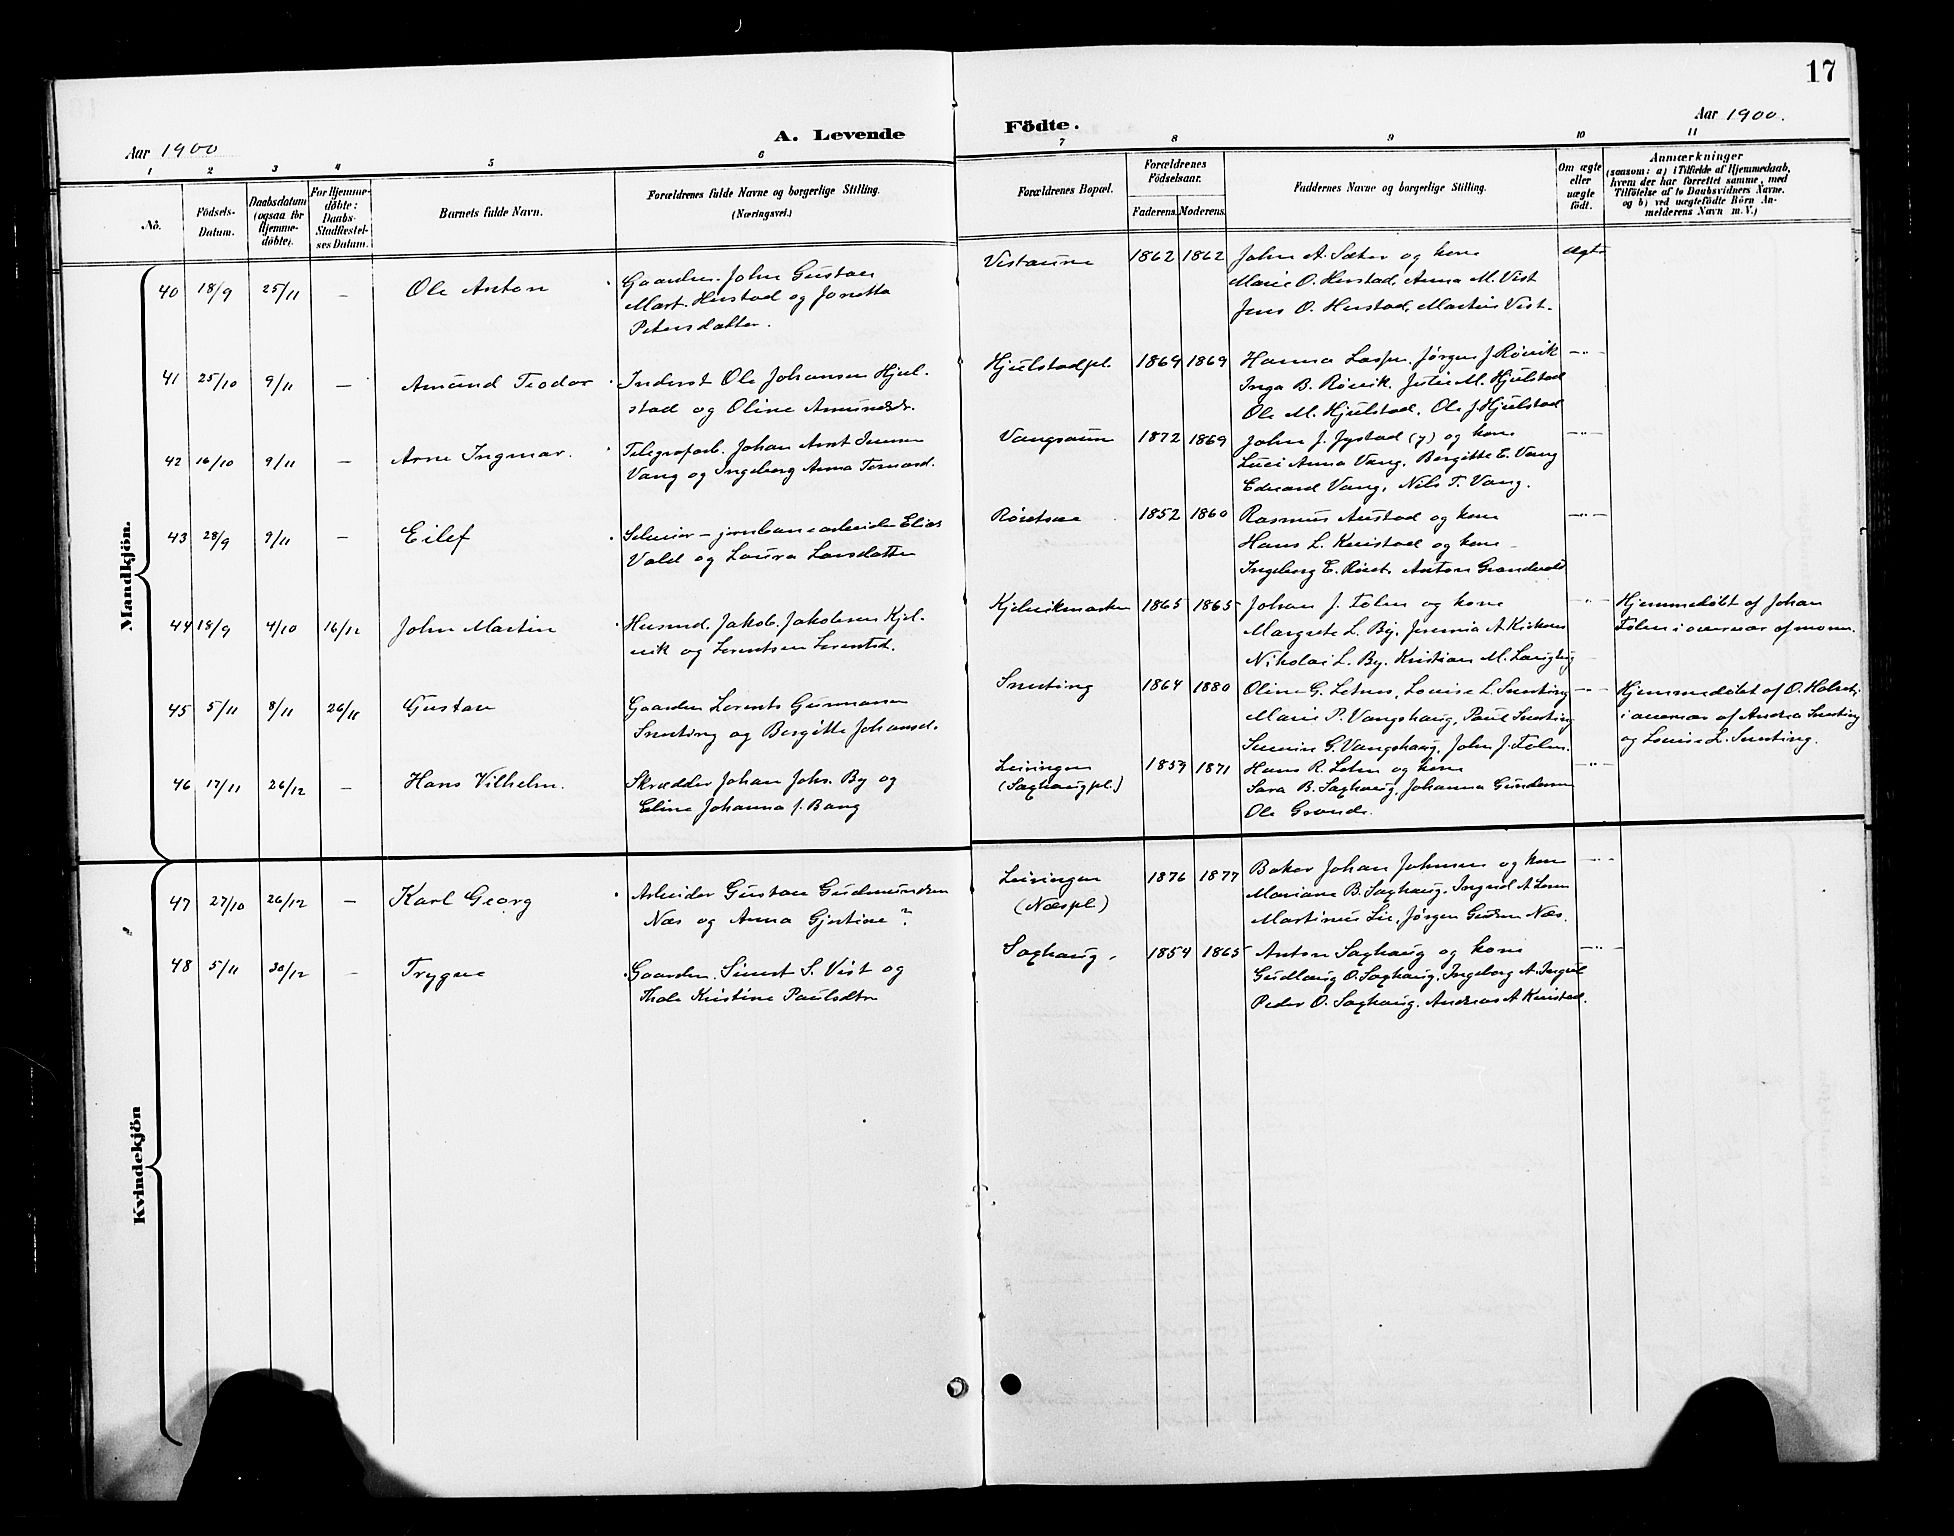 17
A. Levende Födte.
Aar 1900
Aar 1900.
1 2 3 4 5 6 7 8 9 10 11
No.
Födsels-Datum.
Daabsdatum (ogsaa for Hjemme-döbte).
For Hjemme-döbte: Daabs-Stadfæstel-ses Datum.
Barnets fulde Navn.
Forældrenes fulde Navne og borgerlige Stilling.
(Næringsvei.)
Forældrenes Bopæl.
Forældrenes Födselsaar.
Faderens. Moderens.
Faddernes Navne og borgerlige Stilling.
Om ægte eller uægte födt.
Anmærkninger
(saasom: a) i Tilfælde af Hjemmedaab, hvem der har forrettet samme, med Tilföielse af to Daabsvidners Navne. og b) ved uægtefödte Börn An-melderens Navn m. V.)
Mandkjön.
40 18/9 25/11 — Ole Anton
Gaardm. John Gustav
Mart. Hustad og Jonetta
Petersdatter.
Vistaune 1862 1862
John A. Sæter og kone
Marie O. Hustad, Anna M. Vist
Jens O. Hustad, Martin Vist.
ægte
41 25/10 9/11 — Amund Teodor
Inderst Ole Johansen Hjul-
stad og Oline Amundsdr.
Hjulstadpl. 1869 1869
Hanna Jørgen J. Røvik
Inga B. Røvik. M. Hjulstad
Ole M. Hjulstad, Ole J Hjulstad
—"—
42 16/10 9/11 — Arne Ingmar.
Telegrafarb. Johan Arnt
Vang og Ingeborg Anna
Vangsaun 1872 1869
John J. Jystad (y) og kone
Anna Vang, Bergitte E. Vang
Eduard Vang, Nils T. Vang.
—"—
43 28/9 9/11 — Eilef
— jernbanearbeider Elias
Vold og Laura Larsdatter
1852 1860
Rasmus Austad og kone
Hans L. Kvistad og kone
Ingeborg E. Anton
—"—
44 18/9 4/10 16/12 John Martin
Husmd. Jakob Jakobsen Kjel-
vik og Lorentsen Lorentsd.
Kjelvikmarken 1865 1865
Johan J. Følen og kone
Margrete L. By, A.
Nikolai L. By. Kristian M.
—"—
Hjemmedøbt af Johan
Følen i overvær af moren.
45 5/11 8/11 26/11 Gustav
Gaardm Lorents Gunnarsen
Smeting og Bergitte Johansd.
Smeting 1864 1880
Oline G. Letnes, Louise L. Smeting
Marie P. Vangshaug, Paul Smeting
G. Vangshaug, John J. Følen.
—"—
Hjemmedøbt af O.
i overvær af Andrea Smeting
og Louise L. Smeting.
46 17/11 26/12 — Hans Vilhelm.
Skrædder Johan Johs. By og
Eline Johanna f. Bang
Leiringen
(Saxhaugpl.) 1859 1871
Hans R. og kone
Sara B. Saxhaug, Johanna Gundersen
Ole Grande.
—"—
Kvindekjön
47 27/10 26/12 — Karl Georg
Arbeider Gustav Gudmundsen
Næs og Anna Gjertine ?
Leiringen
(Næspl.) 1876 1877
Baker Johan Johnsen og kone
Mariane B. Saxhaug, Ingrid A.
Martinus Lie, Jørgen Næs.
—"—
48 5/11 30/12 — Trygve
Gaardm. S. Vist og
Thale Kristine Paulsdtr
Saxhaug. 1854 1865
Anton Saxhaug og kone
Gudlaug O. Saxhaug, Ingeborg A.
Peder O. Saxhaug, Andreas A Kvistad.
—"—